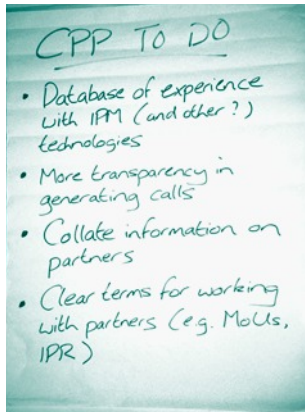 CPP TO DO
• Database of experience
with IPM (and other?)
technologies
• More transparency in
generating calls
• Collate information on
partners
• Clear terms for working
with partners (e.g. MoUs,
IPR)